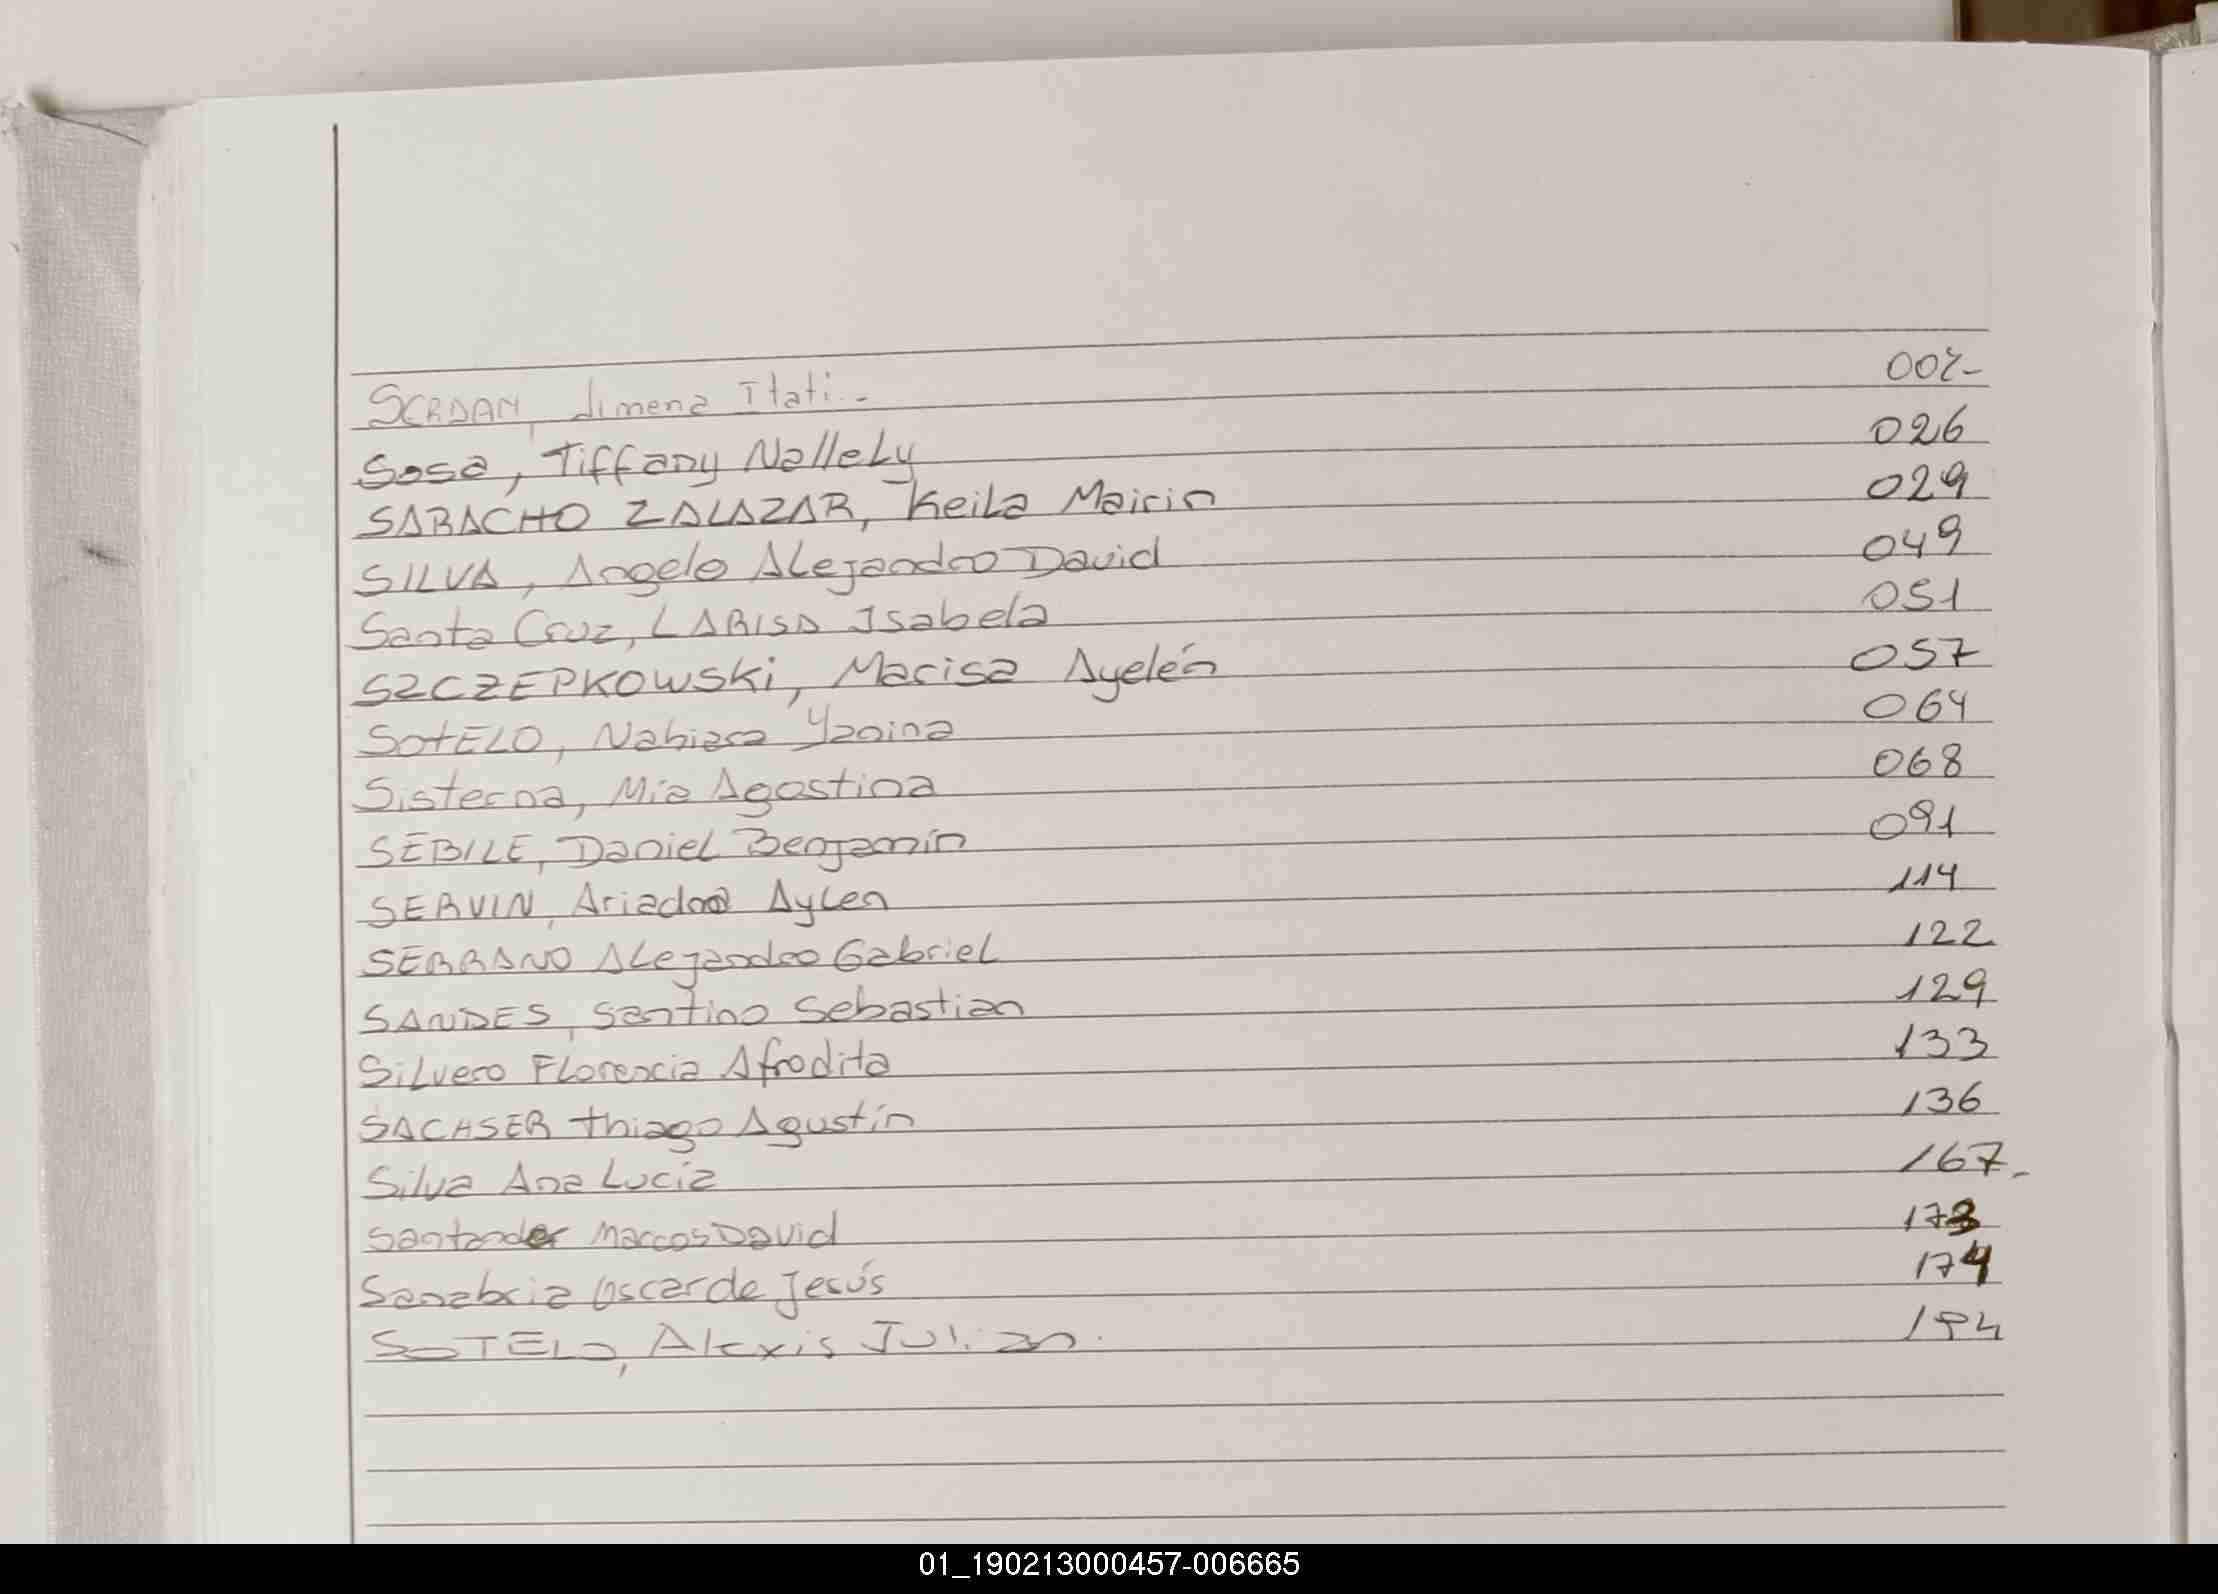 Jimena Itati.- 002-
Sosa, Tiffany Nallely 026
SABACHO ZALAZAR, Keila Mairin 029
SILVA, Angelo Alejandro David 049
Santa Cruz, LARISA Isabela 051
SZCZEPKOWSKi, Marisa Ayelén 057
SotELO, Nahiara Yanina 064
Sisterna, Mia Agostina 068
SEBILE, Daniel Benjamín 091
SERVIN, Ariadna Aylen 114
SERRANO Alejandro Gabriel 122
SANDES, Santino Sebastian 129
Silvero Florencia Afrodita 133
SACHSER thiago Agustín 136
Silva Ana Lucía 167-
Santander Marcos David 173
Sanabria Oscar de Jesús 174
SOTELO, Alexis Julian.
01_190213000457-006665